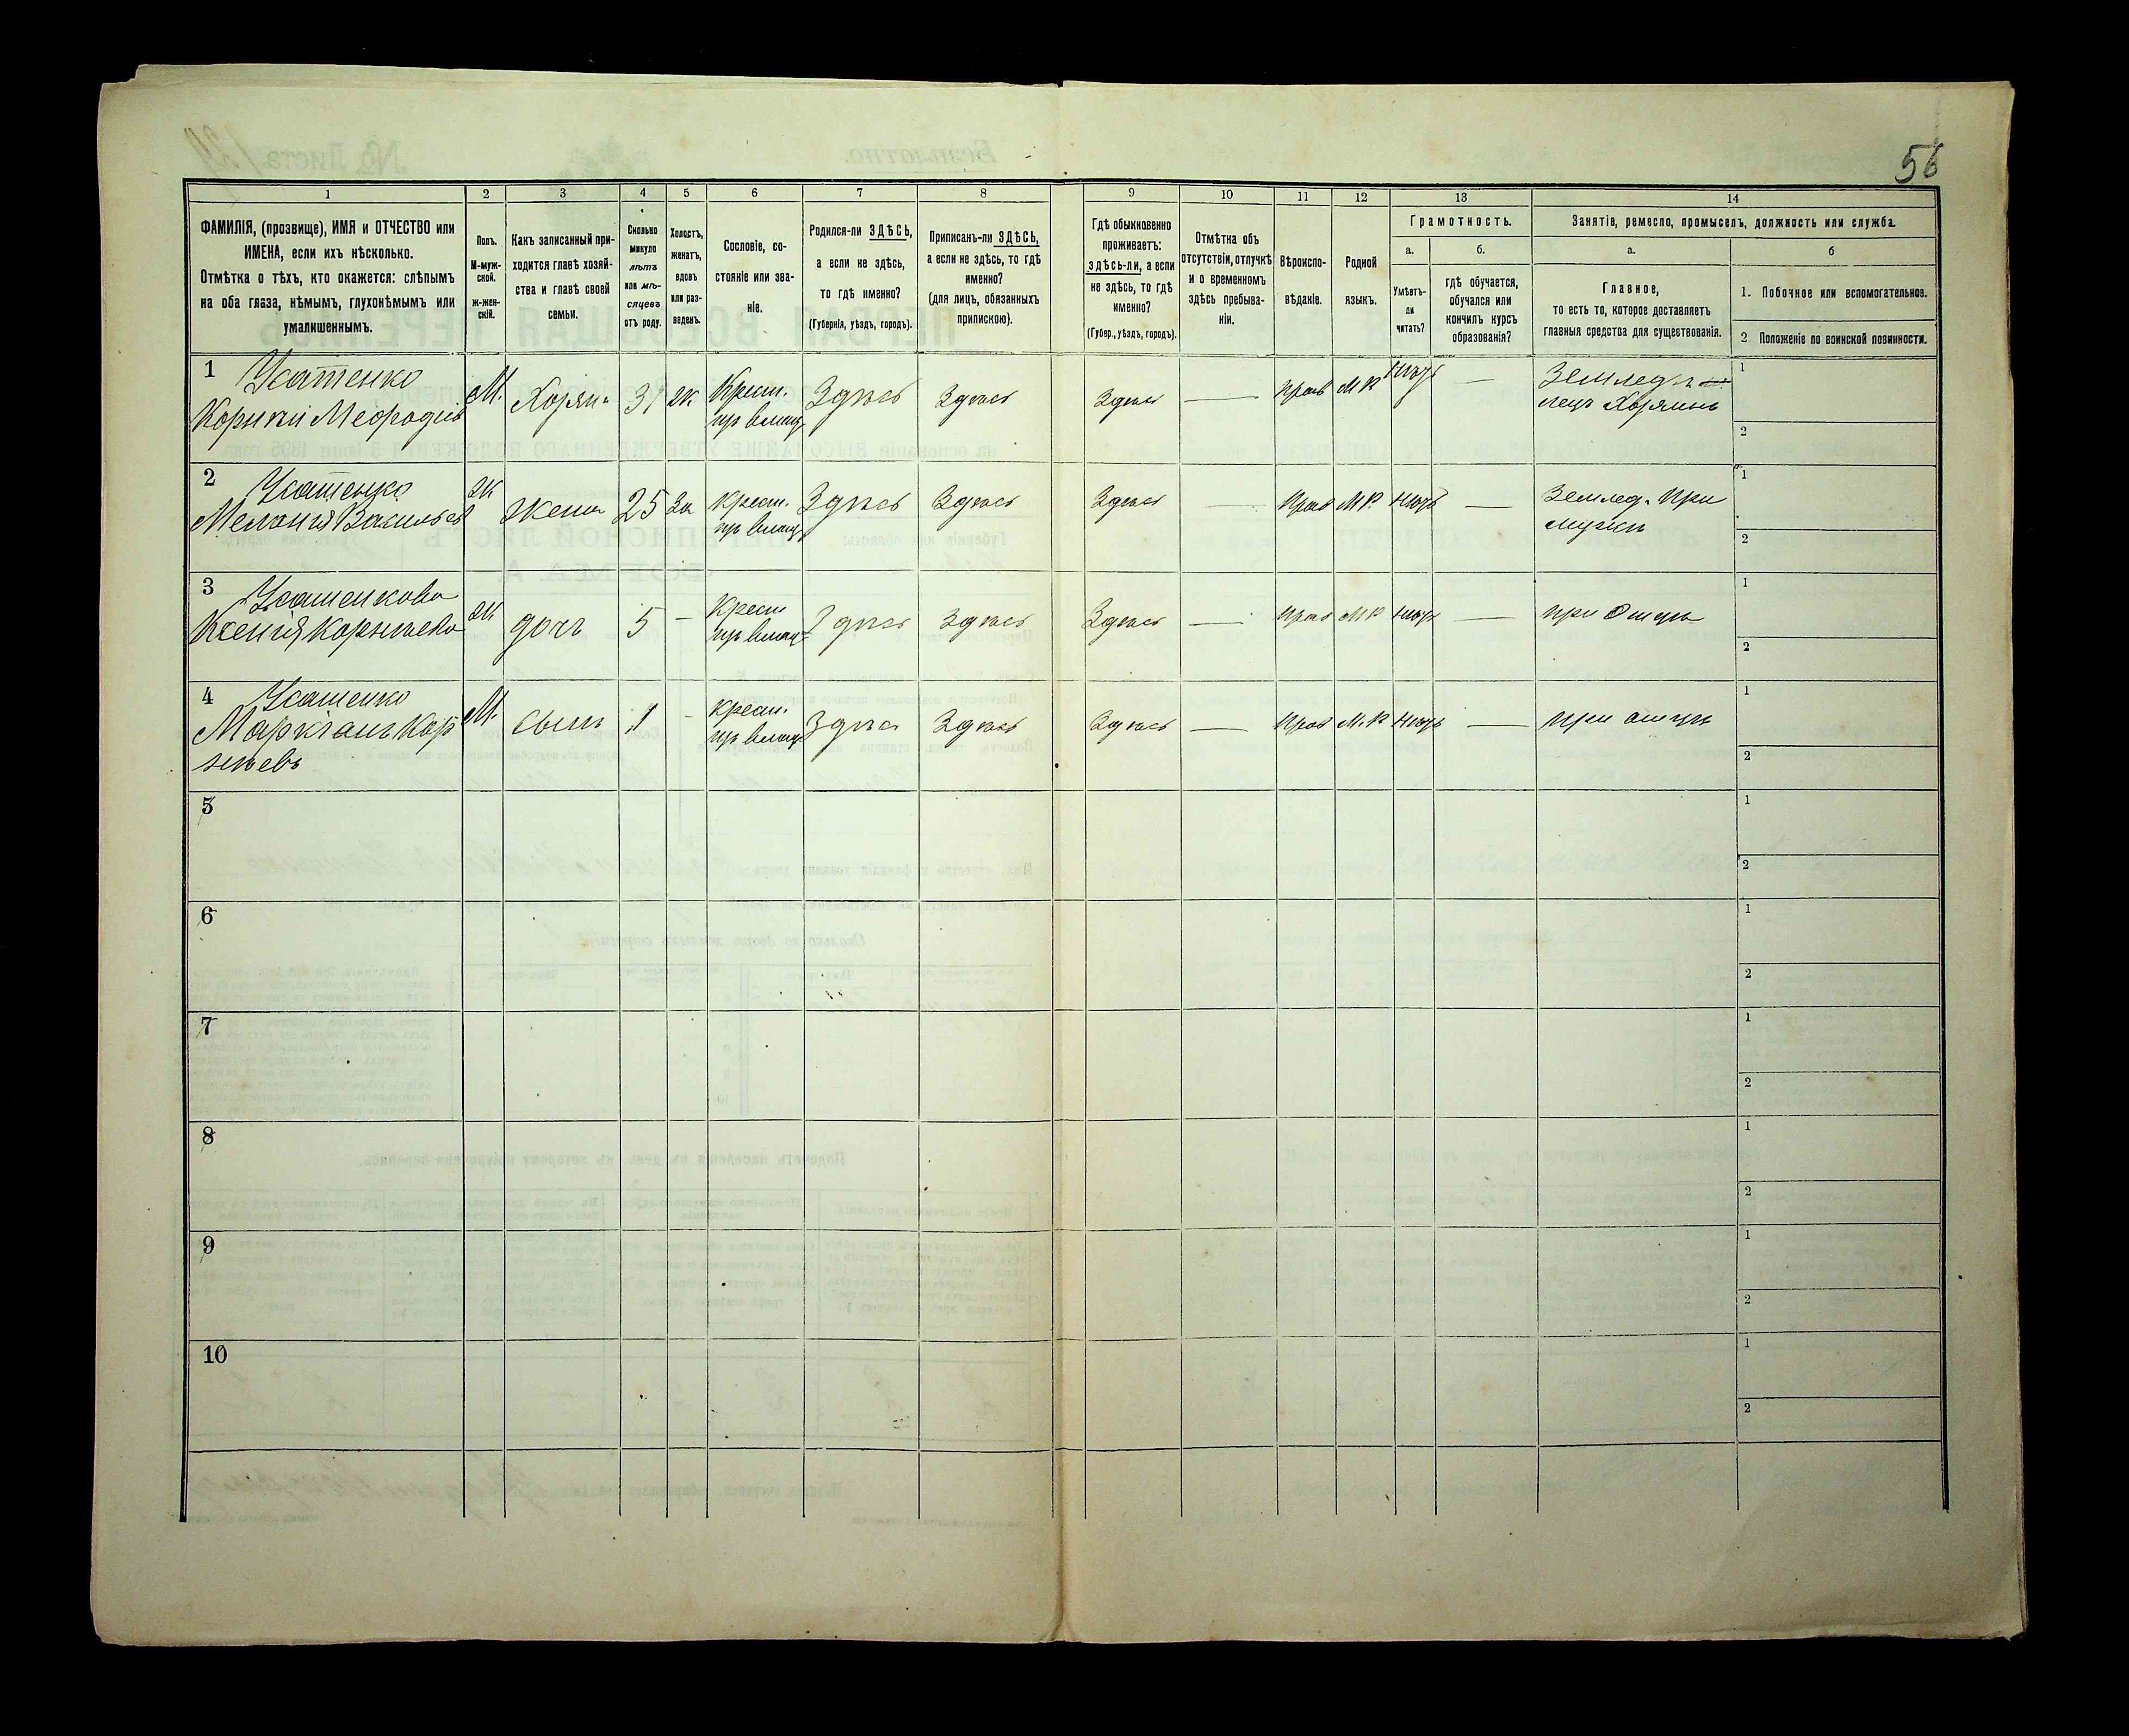 56
1
2
3
4
5
6
7
8
9
10
11
12
13
14
ФАМИЛІЯ, (прозвище), ИМЯ и ОТЧЕСТВО или
ИМЕНА, если ихъ нѣсколько.
Отмѣтка о тѣхъ, кто окажется: слѣпымъ
на оба глаза, нѣмымъ, глухонѣмымъ или
умалишеннымъ.
Полъ.
М-муж-
ской.
ж-жен-
скій.
Какъ записанный при-
ходится главѣ хозяй-
ства и главѣ своей
семьи.
Сколько
минуло
лѣтъ
или мѣ-
сяцевъ
отъ роду.
Холостъ,
женатъ,
вдовъ
или раз-
веденъ.
Сословіе, со-
стояніе или зва-
ніе.
Родился-ли ЗДѢСЬ,
а если не здѣсь,
то гдѣ именно?
(Губернія, уѣздъ, городъ).
Приписанъ-ли ЗДѢСЬ,
а если не здѣсь, то гдѣ
именно?
(для лицъ, обязанныхъ
припискою).
Гдѣ обыкновенно
проживаетъ:
здѣсь-ли, а если
не здѣсь, то гдѣ
именно?
(Губер., уѣздъ, городъ).
Отмѣтка объ
отсутствіи, отлучкѣ
и о временномъ
здѣсь пребыва-
ніи.
Вѣроиспо-
вѣданіе.
Родной
языкъ.
Грамотность.
а.
б.
Умѣетъ-
ли
читать?
гдѣ обучается,
обучался или
кончилъ курсъ
образованія?
Занятіе, ремесло, промыселъ, должность или служба.
а.
б
Главное,
то есть то, которое доставляетъ
главныя средства для существованія.
1. Побочное или вспомогательное.
2. Положеніе по воинской повинности.
1 Усатенко
Корнѣй Мефодіев М. Хозяи 31 ж Крест. Здѣсь Здѣсь Здѣсь — прав М Р нѣтъ — Земледѣ
лецъ Хозяинъ
1
2
2 Усатенко
Меланія Васильев ж жена 25 За крест. Здѣсь Здѣсь Здѣсь — прав М Р. нѣтъ — Землед. при
мужѣ
1
2
3 Усатенкова
Ксенія Корнѣева ж дочь 5 — крест Здѣсь Здѣсь Здѣсь — прав М Р нѣтъ — при отцѣ
1
2
4 Усатенко
Маркіанъ Кор М. сынъ 1 - крест. Здѣсь Здѣсь Здѣсь — прав М. Р нѣтъ — при отцѣ
нѣевъ
1
2
5
1
2
6
1
2
7
1
2
8
1
2
9
1
2
10
1
2